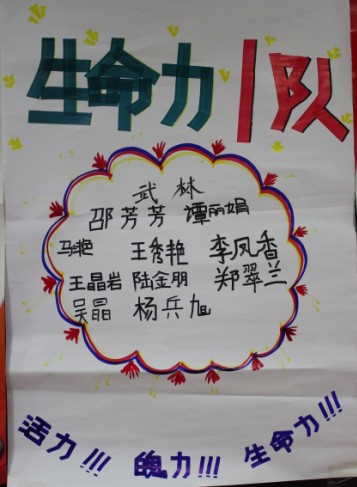 生命力1队
武林
邵芳芳 谭丽娟
马艳 王秀艳 李凤香
王晶岩 陆金朋 郑翠兰
吴晶 杨兵旭
活力!!! 魄力!!! 生命力!!!